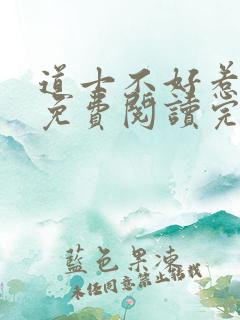 道士不好惹
免費閱讀完
藍色果凍
未任同意禁止轉載